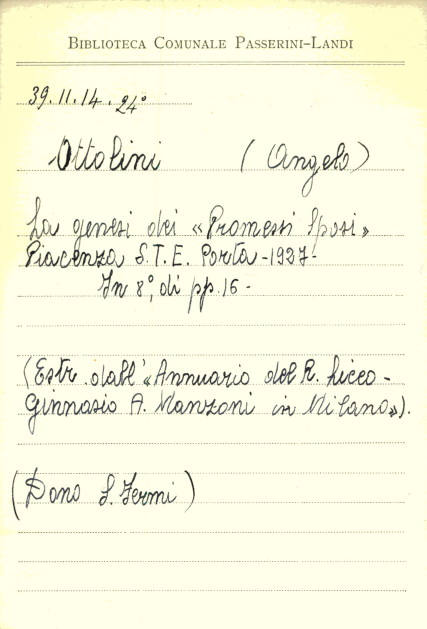 BIBLIOTECA COMUNALE PASSERINI-LANDI
39.11.14.24°
Ottolini (Angelo)
La genesi dei «Promessi Sposi»
Piacenza S.T.E. Porta - 1927 -
In 8°, di pp. 16 -
(Estr. dall'«Annuario del R. Liceo -
Ginnasio A. Manzoni in Milano»).
(Dono S. Fermi)